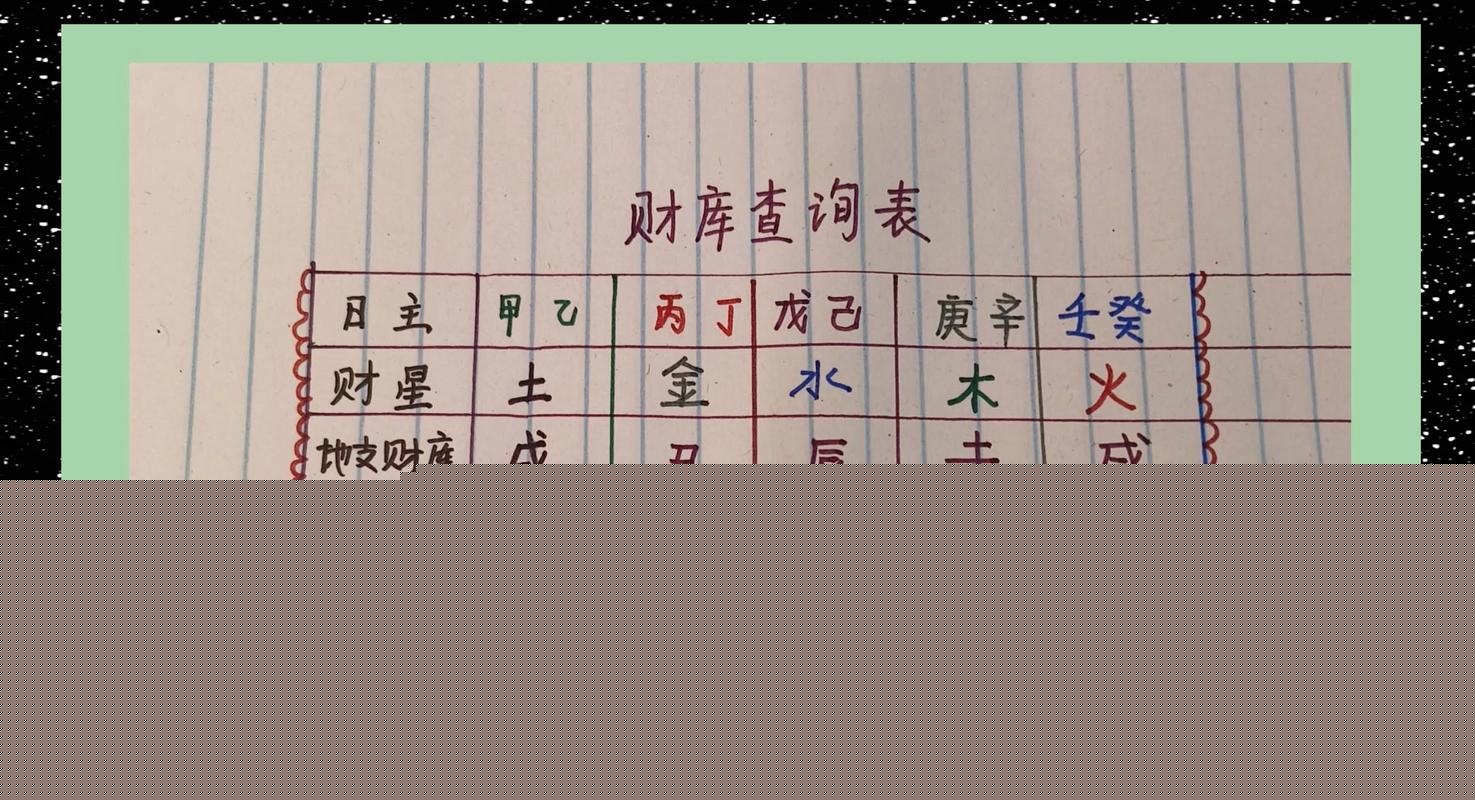 财库查询表
日主 甲乙 丙丁 戊己 庚辛 壬癸
财星 土 金 水 木 火
地支财库